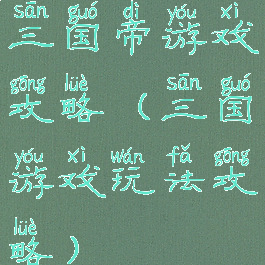 sān guó dì yóu xì
三国帝游戏
gōng lüè sān guó
攻略（三国
yóu xì wán fǎ gōng
游戏玩法攻
lüè
略）